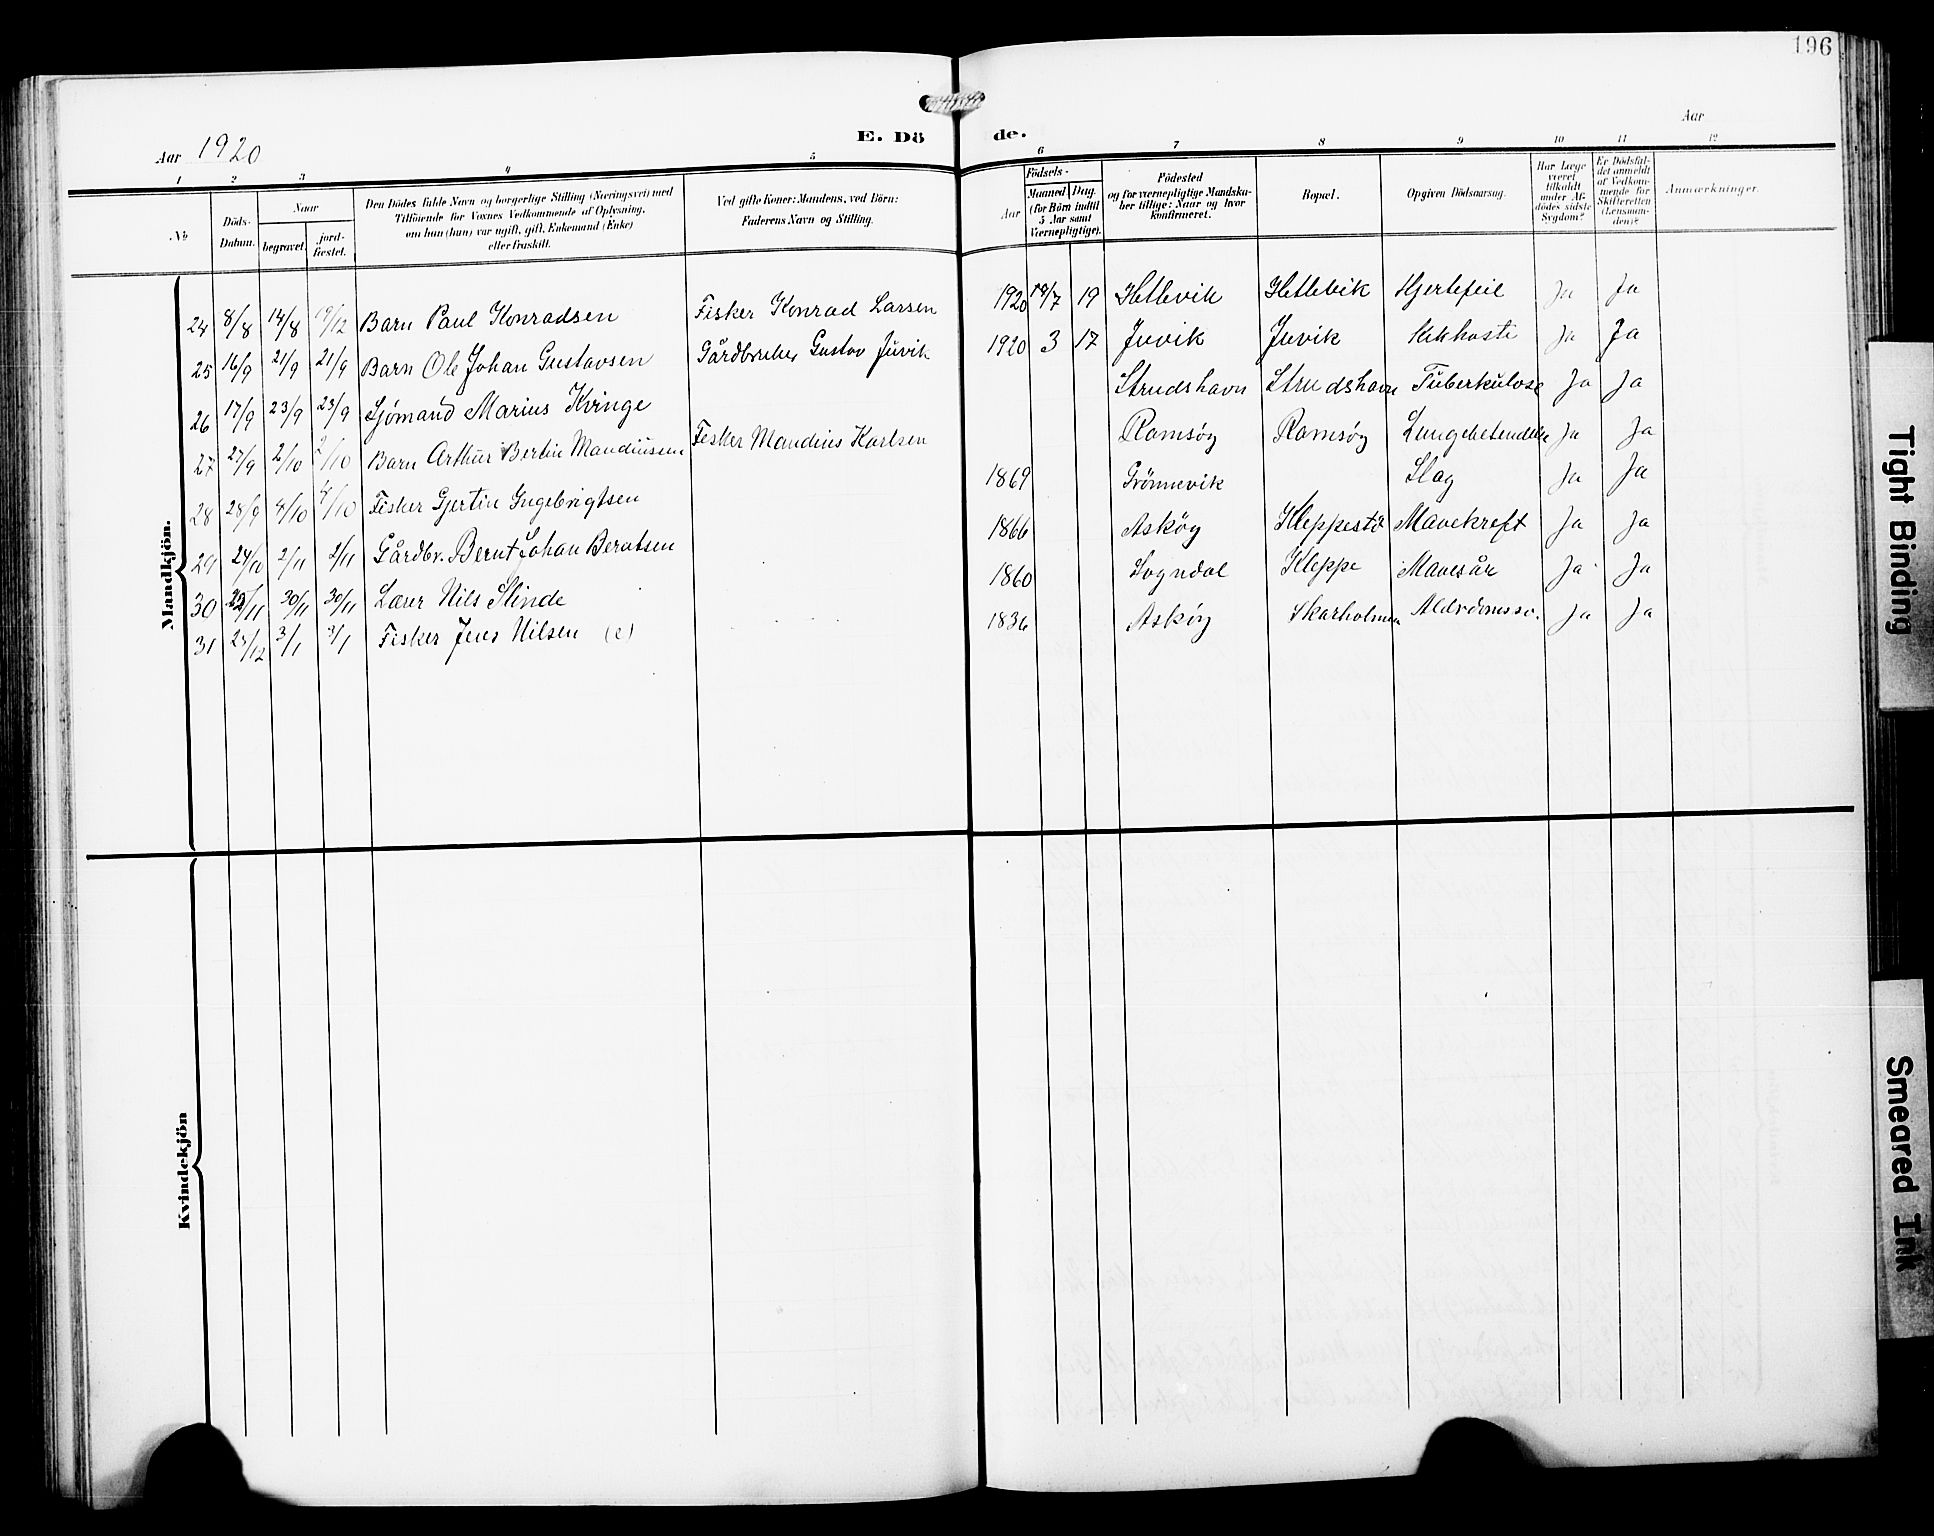 196
Aar 1920
E. Dö de.
Aar
1 2 3 4 5 6 7 8 9 10 11 12
No.
Döds-Datum.
Naar
begravet.
jord-fæstet.
Den Dödes fulde Navn og borgerlige Stilling (Næringsvei) med
Tilföiende for Voxnes Vedkommende af Oplysning,
om han (hun) var ugift, gift, Enkemand (Enke)
eller fraskilt.
Ved gifte Koner: Mandens, ved Börn:
Faderens Navn og Stilling.
Födsels-
Aar
Maaned Dag.
(for Börn indtil
5 Aar samt
Værnepligtige).
Födested
og for værnepligtige Mandska-
ber tillige: Naar og hvor
konfirmeret.
Bopæl.
Opgiven Dödsaarsag.
Har Læge
været
tilkaldt
under Af-
dödes sidste
Sygdom?
Er Dödsfal-
det anmeldt
af Vedkom-
mende for
Skifteretten
(Lensman-
den)?
Anmærkninger.
Mandkjön.
24 8/8 14/8 19/12 Barn Paul Konradsen Fisker Konrad Larsen 1920 19/7 19 Hetlevik Hetlevik Hjertefeil Ja Ja
25 16/9 21/9 21/9 Barn Ole Johan Gustavsen Gårdbruker Gustav Juvik 1920 3 17 Juvik Juvik Kikhoste Ja Ja
26 17/9 23/9 23/9 Sjømand Marius Kvinge Strudshavn Strudshavn Tuberkulose Ja Ja
27 27/9 2/10 2/10 Barn Arthur Bertin Mandiusen Fisker Mandius Karlsen Ramsøy Ramsøy Lungebetendelse Ja Ja
28 28/9 4/10 4/10 Fisker Gjertin Ingebrigtsen 1869 Grønnevik Slag Ja Ja
29 24/10 2/11 2/11 Gårdbr. Bernt Johan Berntsen 1866 Askøy Kleppestø Mavekreft Ja Ja
30 /11 30/11 30/11 Lærer Nils Slinde 1860 Sogndal Kleppe Mavesår Ja Ja
31 /12 3/1 3/1 Fisker Jens Nilsen (e) 1836 Askøy Skarholmen Alderdomssv. Ja Ja
Kvindekjön
Tight Binding
Smeared Ink